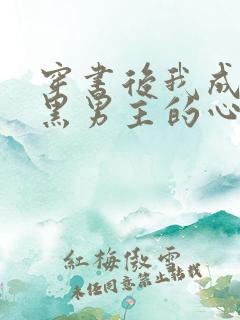 穿書後我成
黑男主的心
紅梅傲雪
未经同意禁止转载